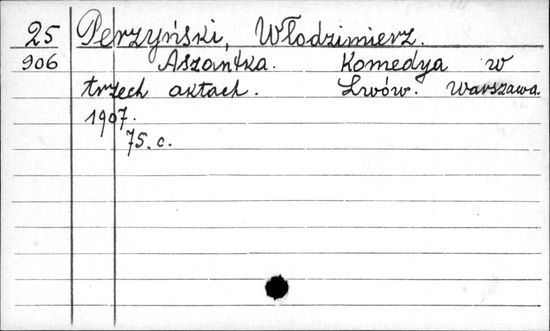 25 Perzyński, Włodzimierz.
906 Aszantka. Komedya w
trzech aktach. Lwów. Warszawa.
1907.
75. c.